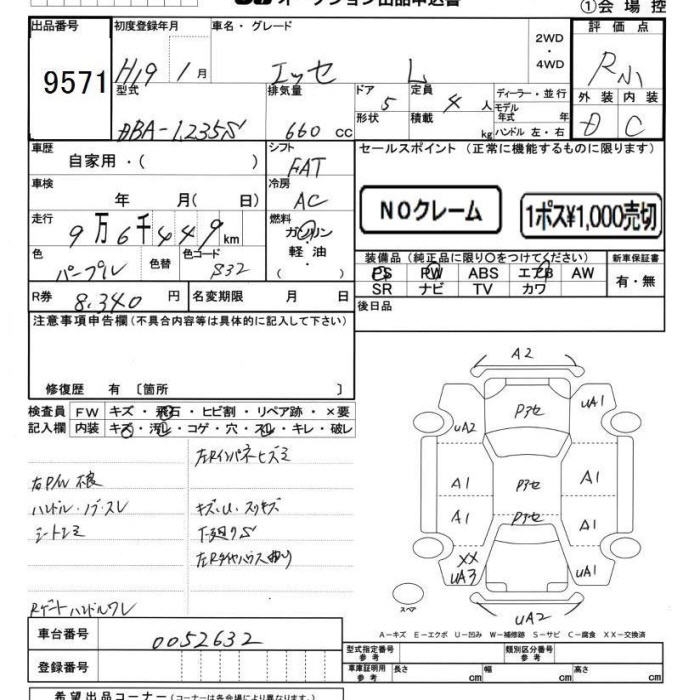 オークション出品申込書
①会場控
出品番号 初度登録年月 車名・グレード 評価点
9571 H19年 1月 エッセ L 2WD・4WD R小
型式 排気量 ドア 定員 ディーラー・並行 外装 内装
DBA-L235S 660cc 5 4人 モデル年式 年 D C
形状 積載 kg ハンドル 左・右
車歴 シフト セールスポイント (正常に機能するものに限ります)
自家用・( ) FAT
車検 冷房
年 月(日) AC NOクレーム 1ポス¥1,000売切
走行 燃料
9万6千449km ガソリン・軽油・( )
色 色替 色コード 装備品 (純正品に限り○をつけてください) 新車保証書
パープル S32 PS PW ABS エアB AW 有・無
SR ナビ TV カワ
R券 8,340円 名変期限 月 日 後日品
注意事項申告欄(不具合内容等は具体的に記入して下さい)
修復歴 有 〔箇所 〕
検査員記入欄 FW キズ・飛石・ヒビ割・リペア跡・×要
内装 キズ・汚れ・コゲ・穴・スレ・キレ・破レ
左Rインパネヒズミ
右P/W不良
ハンドル・ノブ・スレ キズ・U・スリキズ
シートシミ 下廻りS
左Rタイヤハウス曲り
Rゲートハンドルワレ
A2
P3セ
UA1
UA2
A1 P3セ A1
A1 P3セ A1
XX
UA3
UA1
スペア
UA2
A-キズ E-エクボ U-凹み W-補修跡 S-サビ C-腐食 XX-交換済
車台番号 0052632
型式指定番号 参考 類別区分番号 参考
登録番号 車庫証明用 参考 長さ cm 幅 cm 高さ cm
希望出品コーナー(コーナーは各会場により異なります)